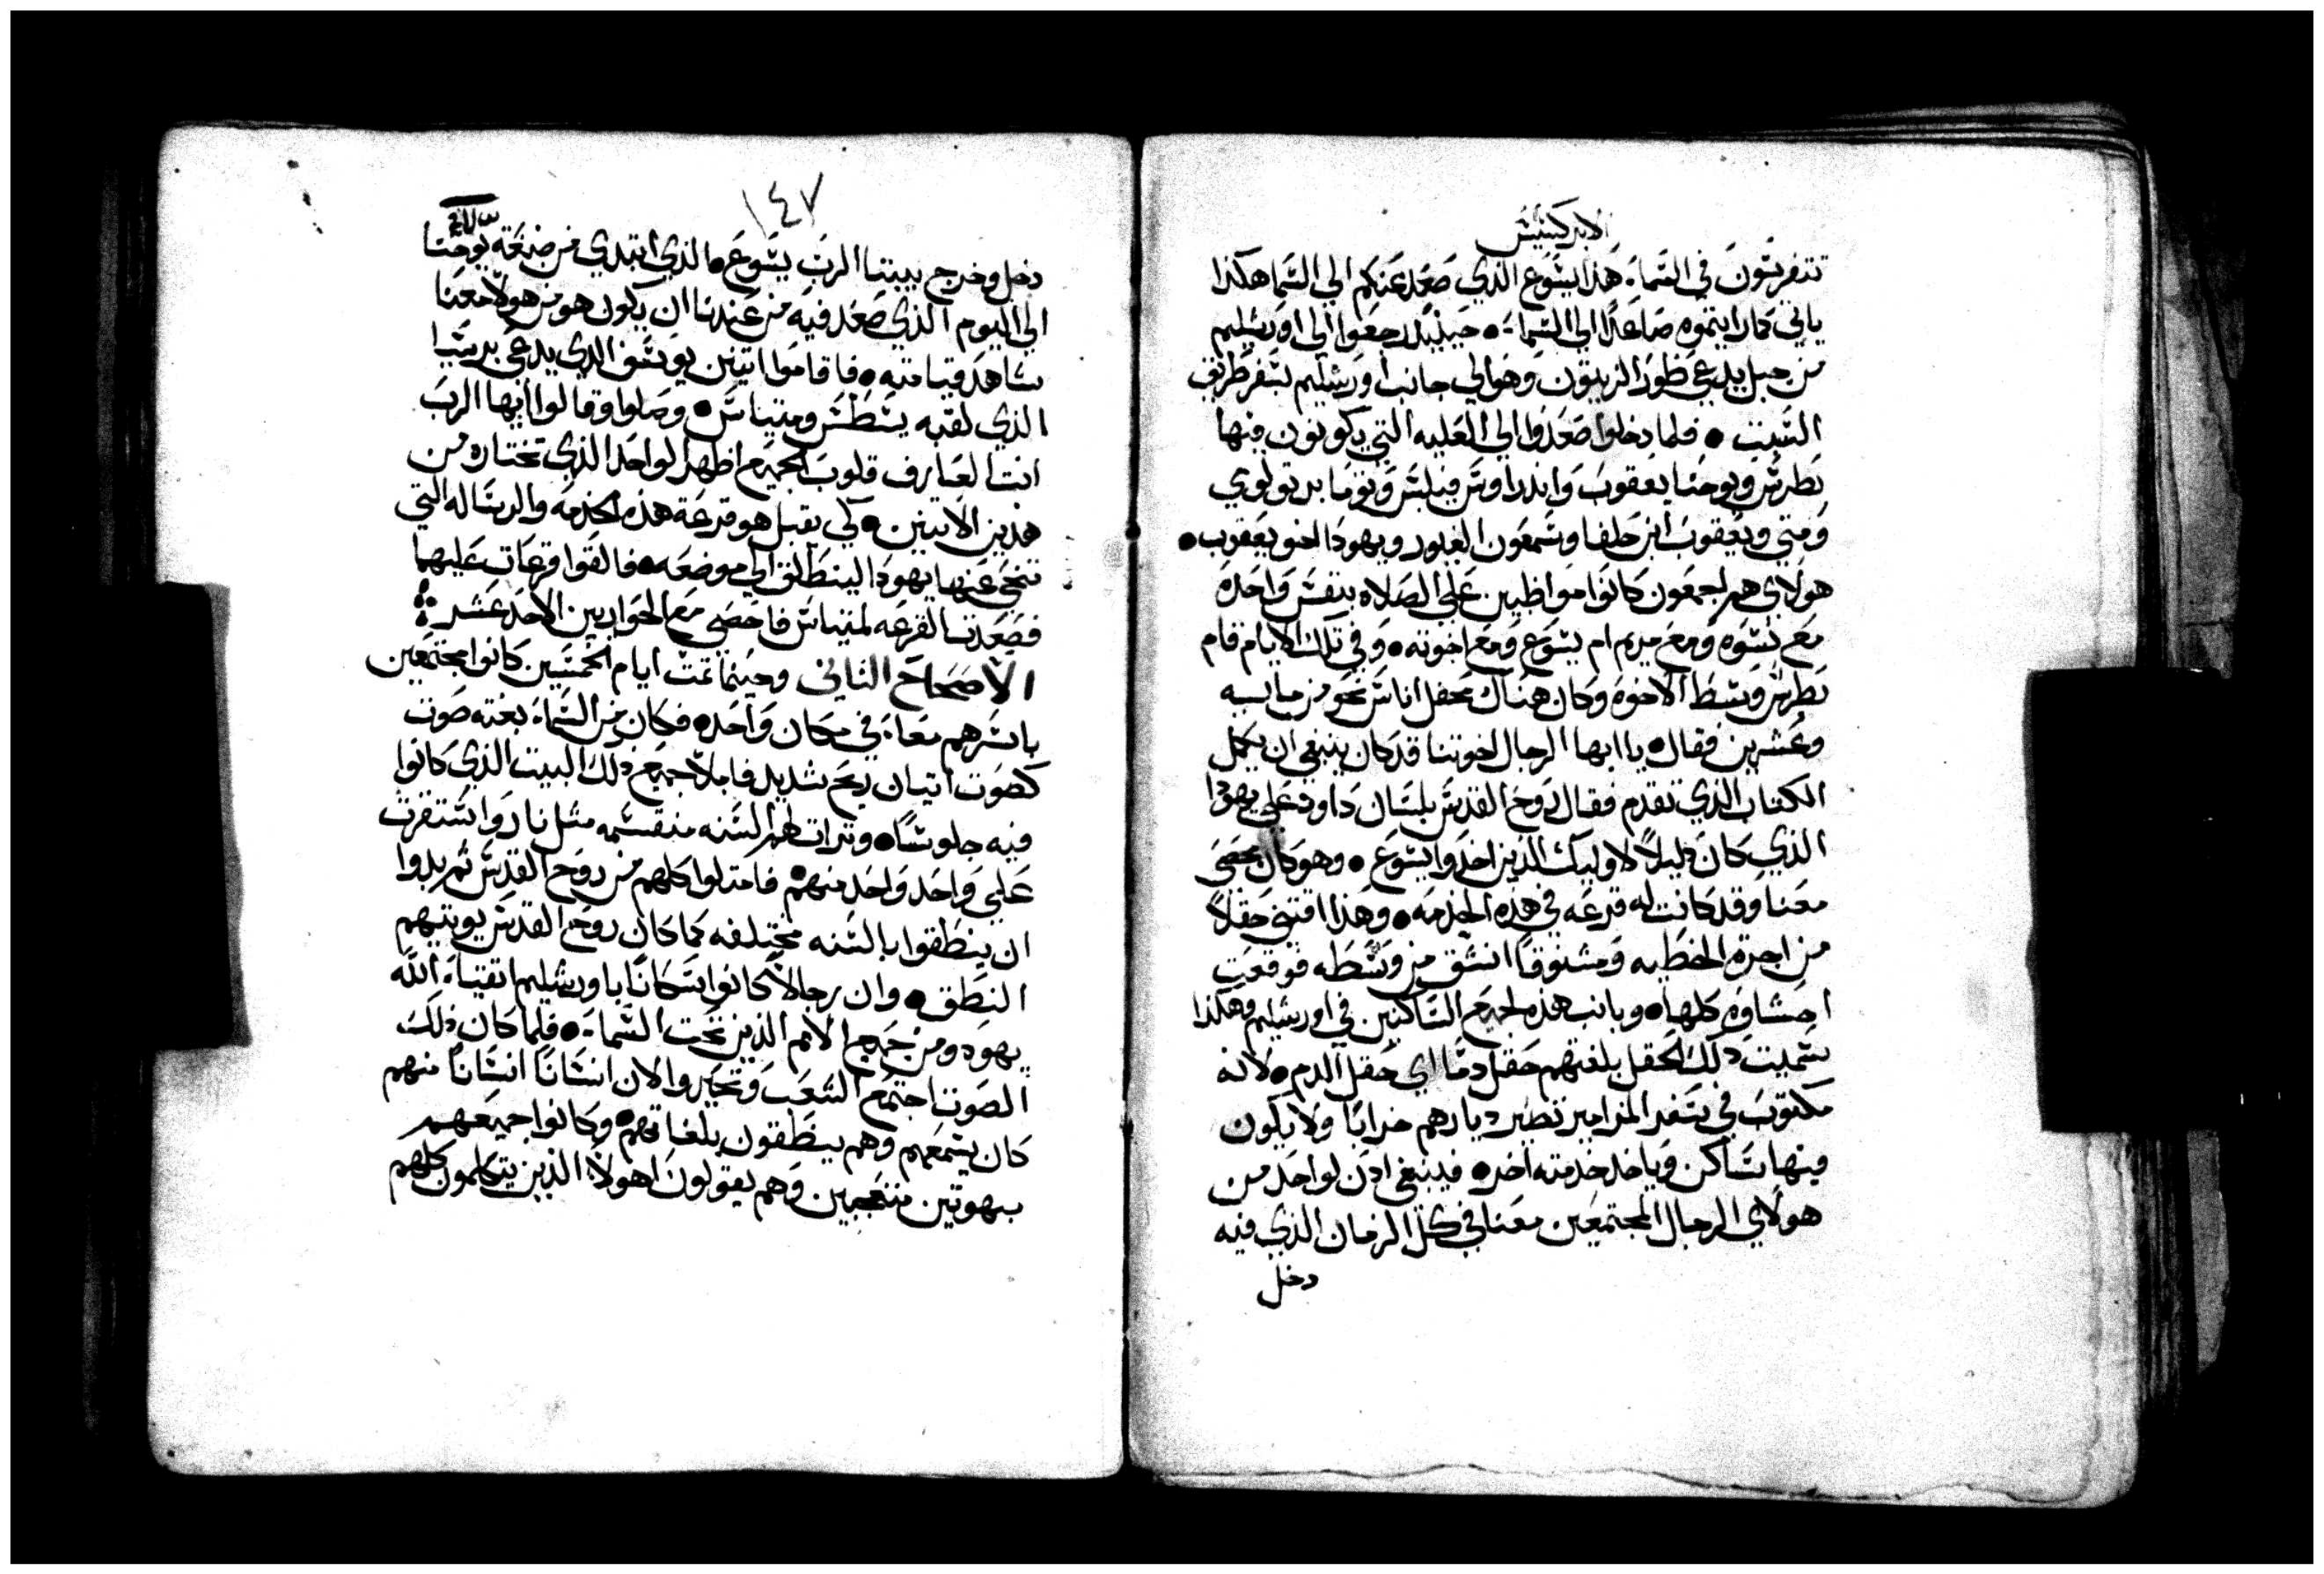 الابركسيس
تتفرسون في السما. هذا يسوع الذي صعد عنكم الي السما هكذا
ياتي كمارايتموه صاعدًا الي السما. حينيذ رجعوا الي اورشليم
من جبل يدعي طور الزيتون وهو الي جانب اورشليم بسفر طريق
السبت ● فلما دخلوا صعدوا الي العليه التي يكونون فيها
بطرس ويوحنا يعقوب واندراوس فيلبس وتوما برتولوي
ومتي ويعقوب ابن حلفا وسمعون الغيور ويهودا اخو يعقوب ●
هولاي هم اجمعون كانوا مواظبين علي الصلاه بنفس واحده
مع نسوه ومع مريم ام يسوع ومع اخوته ● وفي تلك الايام قام
بطرس وسط الاخوه وكان هناك محفل اناس نحو من مايه
وعشرين فقال ● يا ايها الرجال اخوتنا قد كان ينبغي ان يكمل
الكتاب الذي تقدم فقال روح القدس بلسان داود علي يهودا
الذي كان دليلاً لاوليك الذين اخذوا يسوع ● وهو كان يحصي
معنا وقد كانت له قرعه في هذه الخدمه ● وهذا اقتني حقلاً
من اجرة الخطيه ومشنوقًا انشق من وسطه فوقعت
احشاوه كلها ● وبانت هذه لجميع الساكنين في اورشليم وهكذا
سميت ذلك الحقل بلغتهم حقل دما اي حقل الدم ● لانه
مكتوب في سفر المزامير تصير ديارهم خرابًا ولا يكون
فيها ساكن وياخذ خدمته اخر ● فينبغي اذن لواحد من
هولاي الرجال المجتمعين معنا في كل الزمان الذي فيه
دخل
١٤٧
دخل وخرج بيننا الرب يسوع ● الذي ابتدي من صبغة يوحنا
الي اليوم الذي صعد فيه من عندنا ان يكون هو من هولا معنا
شاهد قيامته ● فاقاموا اتنين يوسف الذي يدعي برسبا
الذي لقبه يسطس ومتياس ● وصلوا وقالوا ايها الرب
انت العارف قلوب الجميع اظهر الواحد الذي تختاره من
هذين الاتنين ● لكي يقبل هو قرعة هذه الخدمه والرساله التي
تنحي عنها يهودا لينطلق الي موضعه ● فالقوا قرعات عليهما
فصعدت القرعه لمتياس فاحصي مع الحواريين الاحد عشر
الاصحاح الثاني وحينما تمت ايام الخمسين كانوا مجتمعين
باسرهم معاً في مكان واحد ● فكان من السما بغته صوت
كصوت اتيان ريح شديد فاملا جميع ذلك البيت الذي كانوا
فيه جلوسًا ● وترات لهم السنه منقسمه مثل نار واستقرت
علي واحد واحد منهم ● فامتلوا كلهم من روح القدس ثم بدوا
ان ينطقوا بالسنه مختلفه كما كان روح القدس يوتيهم
النطق ● وان رجالاً كانوا سكانًا باورشليم اتقياء الله
يهود ومن جميع الامم الذين تحت السما ● فلما كان ذلك
الصوت اجتمع الشعب وتحيروا لان انسانًا انسانًا منهم
كان يسمعهم وهم ينطقون بلغاتهم ● وكانوا جميعهم
بهوتين متعجبين وهم يقولون اهولا الذين يتكلمون كلهم